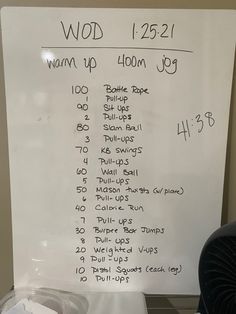 WOD 1·25·21
warm up 400m jog
100 Battle Rope
1 Pull-up
90 Sit ups
2 Pull-ups
80 Slam Ball
3 Pull-ups
70 KB Swings
4 Pull-ups
60 Wall Ball
5 Pull-ups
50 Mason twists (w/plate)
6 Pull-ups
40 Calorie Run
7 Pull-ups
30 Burpee Box Jumps
8 Pull-ups
20 Weighted V-ups
9 Pull-ups
10 Pistol Squats (each leg)
10 Pull-ups
41:38